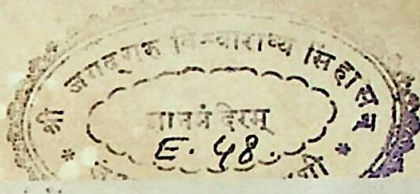 श्री जगद्गुरु विश्वाराध्य सिंहासन
ज्ञानमंदिरम्
E. 48.